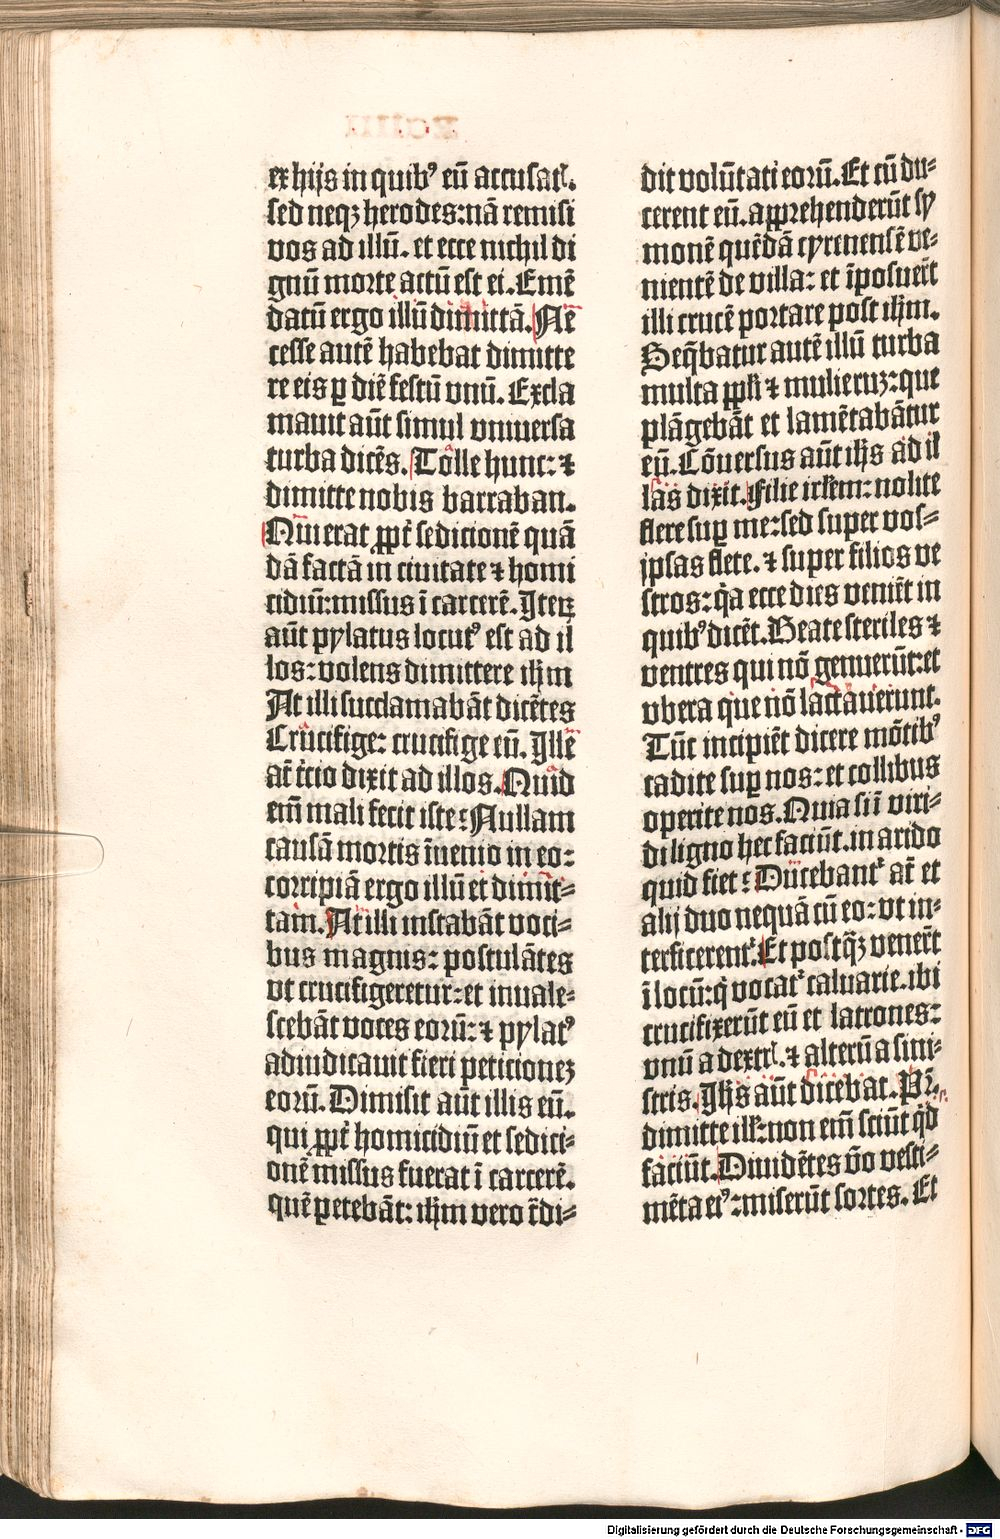 ex hijs in quibꝰ eū accusat᷑.
sed neqꝫ herodes: nā remisi
vos ad illū. et ecce nichil di
gnū morte actū est ei. Emē
datū ergo illū dimittā. Ne
cesse autē habebat dimitte
re eis ꝑ diē festū vnū. Excla
mauit aūt simul vniuersa
turba dicēs. Tolle hunc: ⁊
dimitte nobis barraban.
Qui erat ꝓpt̄ sedicionē quā
dā factā in ciuitate ⁊ homi
cidiū: missus ī carcerē. Iteꝝ
aūt pylatus locutꝰ est ad il
los: volens dimittere ihm
At illi succlamabāt dicētes
Crucifige: crucifige eū. Ille
at̄ t̄cio dixit ad illos. Quid
em̄ mali fecit iste? Nullam
causā mortis īuenio in eo:
corripiā ergo illū et dimit⸗
tam. At illi instabāt voci⸗
bus magnis: postulātes
vt crucifigeretur: et inuale⸗
scebāt voces eorū: ⁊ pylatꝰ
adiudicauit fieri peticionez
eorū. Dimisit aūt illis eū.
qui ꝓpt̄ homicidiū et sedici⸗
onē missus fuerat ī carcerē.
quē petebāt: ihm vero t̄di⸗
dit volūtati eorū. Et cū du⸗
cerent eū. apprehenderūt sy
monē quēdā cyrenensē ve⸗
nientē de villa: et īposuer̄t
illi crucē portare post ihm.
Seq̄batur autē illū turba
multa ppl̄i ⁊ mulieruz: que
plāgebāt et lamētabātur
eū. Cōuersus aūt ihs ad il
las dixit. Filie irl̄em: nolite
flere suꝑ me: sed super vos⸗
ipsas flete. ⁊ super filios ve
stros: q̄a ecce dies veniēt in
quibꝰ dicēt. Beate steriles ⁊
ventres qui nō genuerūt: et
vbera que nō lactauerunt.
Tūc incipiēt dicere mōtibꝰ
cadite suꝑ nos: et collibus
operite nos. Quia si ī viri⸗
di ligno hec faciūt. in arido
quid fiet? Ducebant᷑ at̄ et
alij duo nequā cū eo: vt in⸗
terficerent᷑. Et postq̄ꝫ vener̄t
ī locū: q̄ vocat᷑ caluarie. ibi
crucifixerūt eū et latrones:
vnū a dextr̄. ⁊ alterū a sini⸗
stris. Ihs aūt dicebat. Pr̄.
dimitte ill̄: non em̄ sciūt qd̄
faciūt. Diuidētes v̄o vesti⸗
mēta eiꝰ: miserūt sortes. Et
Digitalisierung gefördert durch die Deutsche Forschungsgemeinschaft - DFG